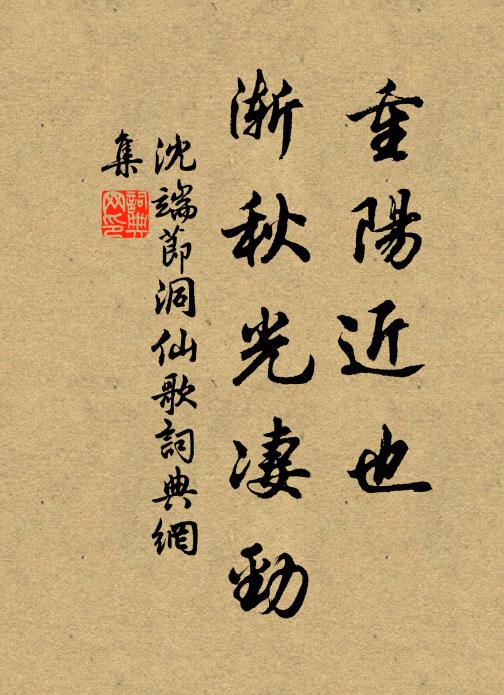 重陽近也
漸秋光凄勁
沈端節洞仙歌詞典網
集
詞典
网印